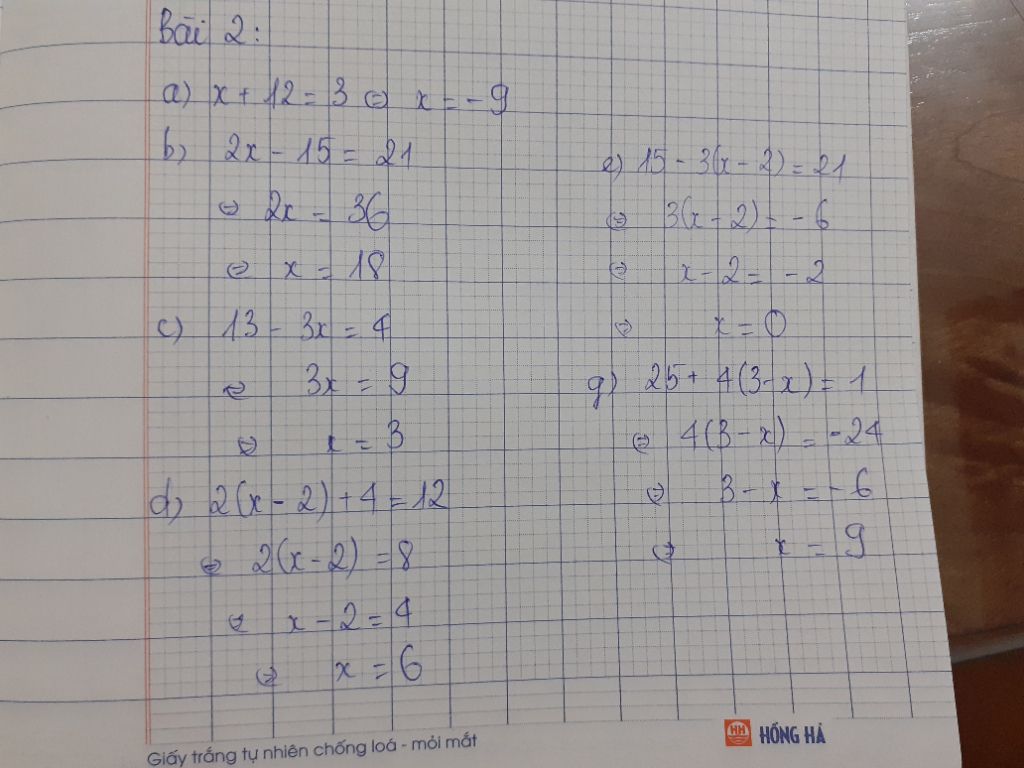 Bài 2:
a) x + 12 = 3 ⇔ x = -9
b) 2x - 15 = 21
⇔ 2x = 36
⇔ x = 18
c) 13 - 3x = 4
⇔ 3x = 9
⇔ x = 3
d) 2(x - 2) + 4 = 12
⇔ 2(x - 2) = 8
⇔ x - 2 = 4
⇔ x = 6
e) 15 - 3(x - 2) = 21
⇔ 3(x - 2) = -6
⇔ x - 2 = -2
⇔ x = 0
g) 25 + 4(3 - x) = 1
⇔ 4(3 - x) = -24
⇔ 3 - x = -6
⇔ x = 9
Giấy trắng tự nhiên chống loá - mỏi mắt
HH HỒNG HÀ